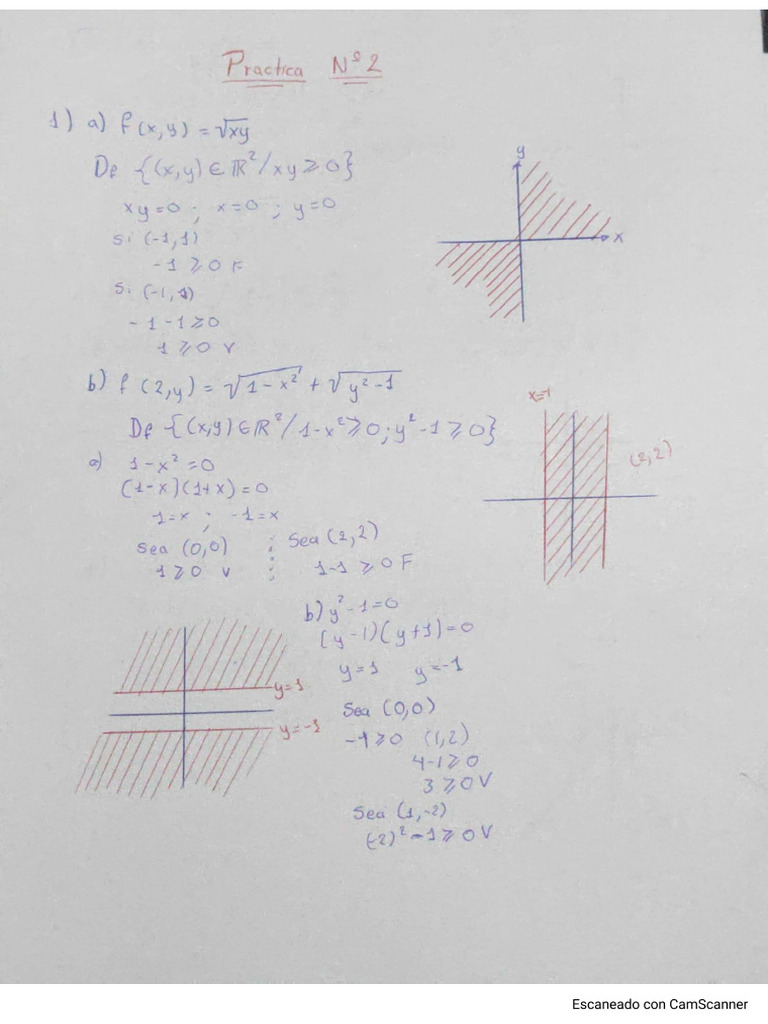 Practica Nº 2
1) a) f(x,y) = √xy
Df {(x,y) ∈ ℝ²/xy ≥ 0}
xy=0 ; x=0 ; y=0
Si (-1,1)
-1 ≥ 0 F
Si (-1,1)
-1 -1 ≥ 0
1 ≥ 0 V
y
x
b) f (2,y) = √1-x² + √y²-1
Df {(x,y) ∈ ℝ²/1-x² ≥ 0 ; y²-1 ≥ 0}
a) 1-x² = 0
(1-x)(1+x) = 0
1=x ; -1=x
Sea (0,0) ; Sea (2,2)
1 ≥ 0 V ; 1-1 ≥ 0 F
x=-1
(2,2)
b) y²-1=0
(y-1)(y+1)=0
y=1 y=-1
Sea (0,0)
-1 ≥ 0 (1,2)
4-1 ≥ 0
3 ≥ 0 V
Sea (1,-2)
(-2)² -1 ≥ 0 V
y=1
y=-1
Escaneado con CamScanner